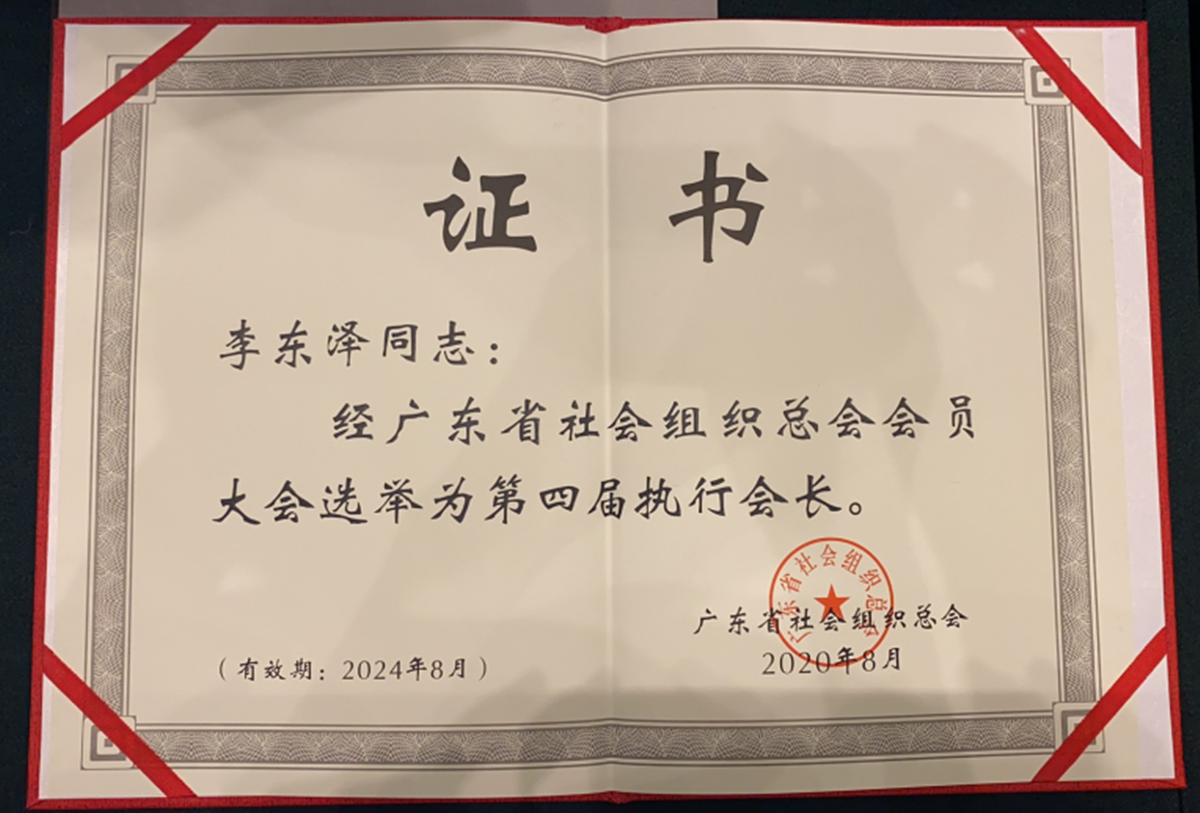 证书
李东泽同志：
经广东省社会组织总会会员
大会选举为第四届执行会长。
广东省社会组织总会
广东省社会组织总会
2020年8月
（有效期：2024年8月）